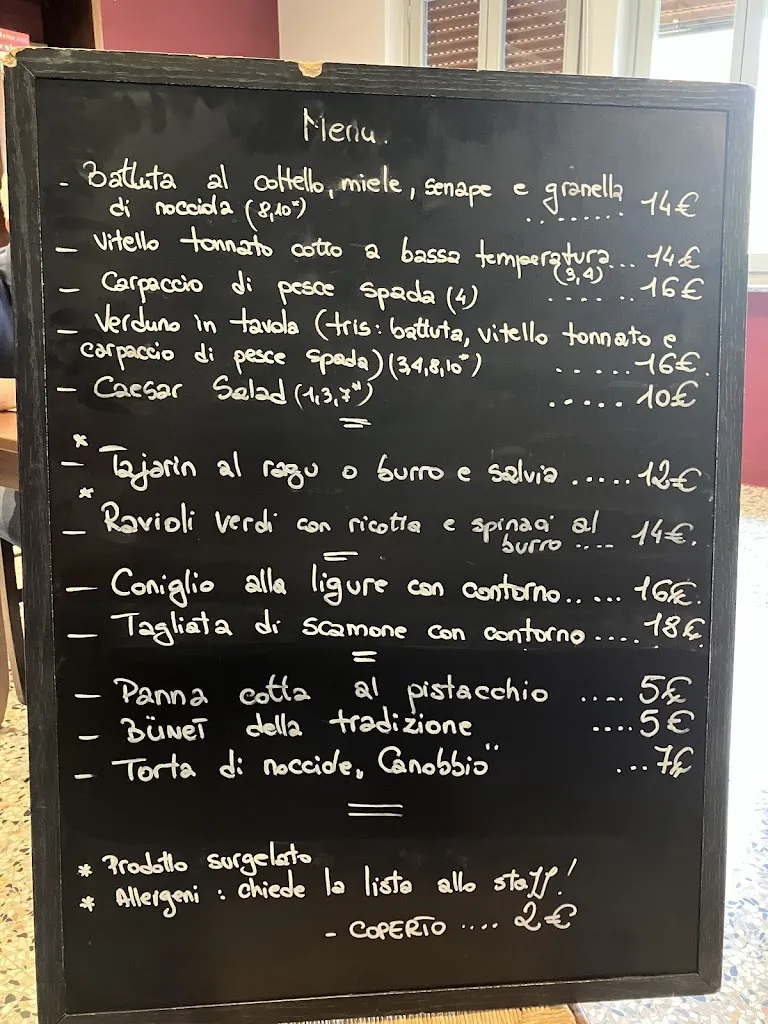 Menu.
- Battuta al coltello, miele, senape e granella
di nocciola (8,10*) ........ 14€
- Vitello tonnato cotto a bassa temperatura... 14€
(3,4)
- Carpaccio di pesce spada (4) ...... 16€
- Verduno in tavola (tris: battuta, vitello tonnato e
carpaccio di pesce spada) (3,4,8,10*) ...... 16€.
- Caesar Salad (1,3,7*) ..... 10€
=
*
- Tajarin al ragu o burro e salvia ..... 12€
*
- Ravioli verdi con ricotta e spinaci al
burro .... 14€.
=
- Coniglio alla ligure con contorno..... 16€.
- Tagliata di scamone con contorno .... 18€.
=
- Panna cotta al pistacchio .... 5€
- BÜNET della tradizione .... 5€
- Torta di nocciole „Canobbio" ... 7€
=
* Prodotto surgelato
* Allergeni : chiede la lista allo staff!
- COPERTO .... 2€